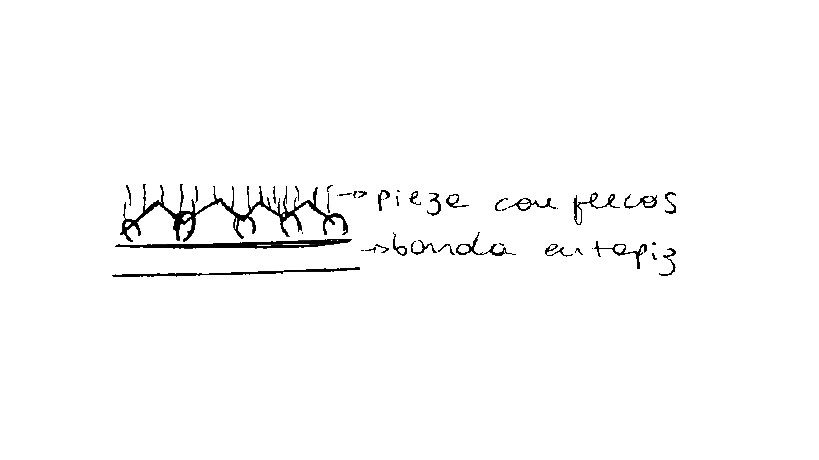 pieza con flecos
banda en tapiz